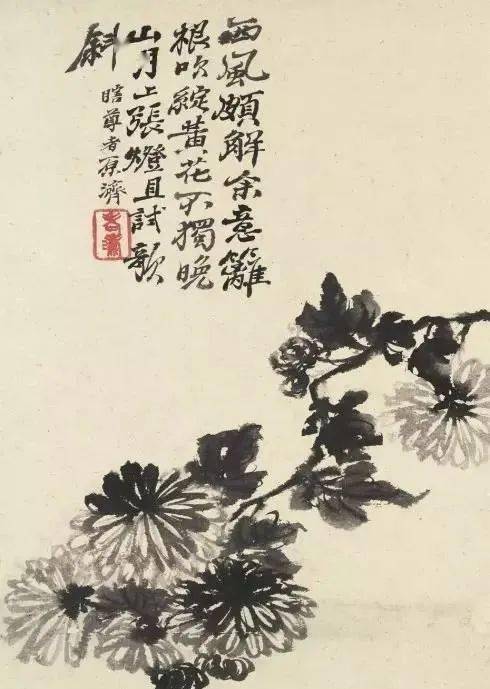 西風頗解余意籬
根吹綻黃花不獨晚
山月上張燈且試歌
斜
瞎尊者原濟
老濤